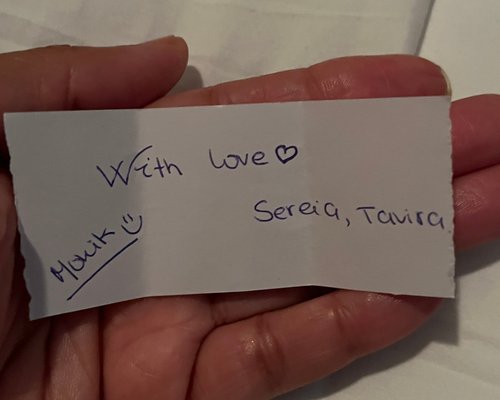 With love ♡
Sereia, Tavira
Monik ☺